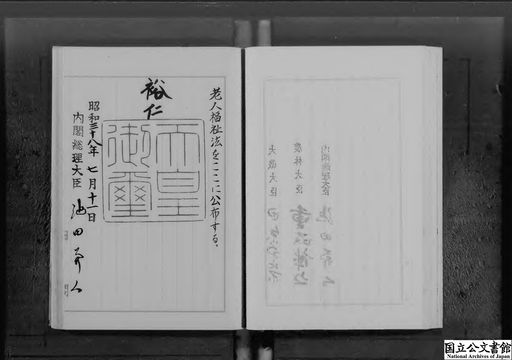 老人福祉法をここに公布する。
裕仁
天皇
御璽
昭和三十八年七月十一日
内閣総理大臣 池田勇人
内閣総理大臣 池田勇人
農林大臣 重政誠之
大蔵大臣 田中角榮
国立公文書館
National Archives of Japan